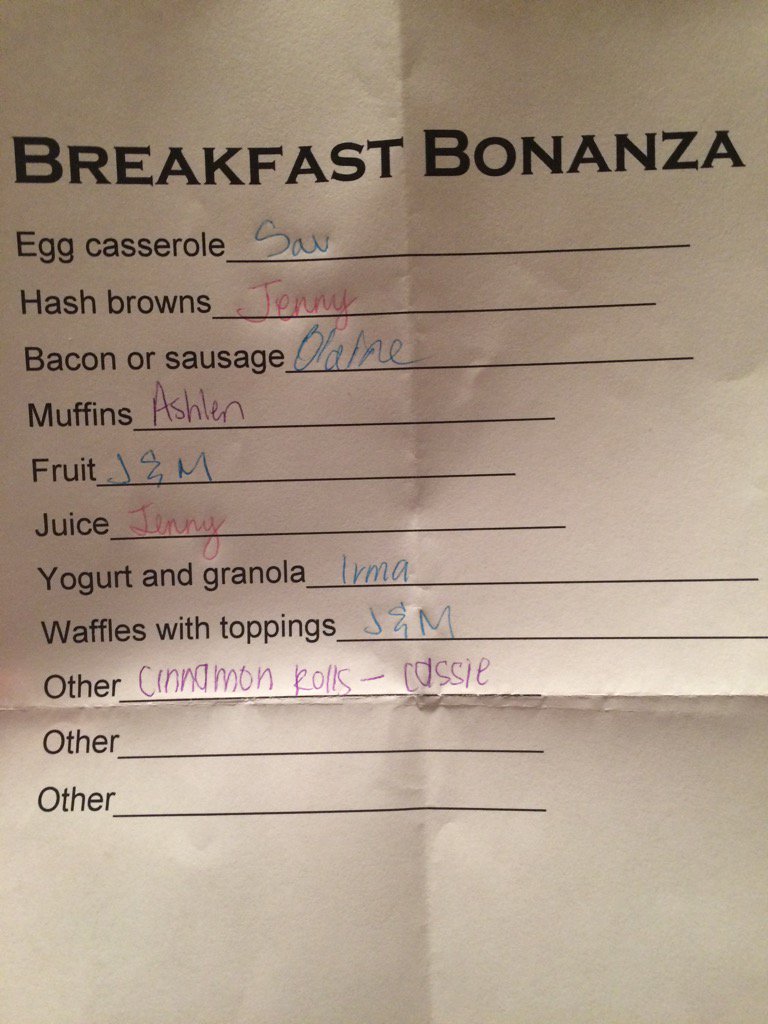 BREAKFAST BONANZA
Egg casserole Sav
Hash browns Jenny
Bacon or sausage Olaine
Muffins Ashlen
Fruit J & M
Juice Jenny
Yogurt and granola Irma
Waffles with toppings J & M
Other Cinnamon Rolls - Cassie
Other
Other